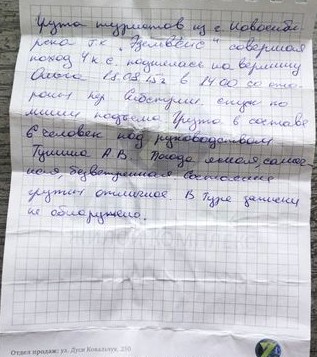 Группа туристов из г. Новосиби
рска т.к. совершая
поход 4 к.с. поднялась на вершину
в 14 00 со сто
роны пер спуск по
линии подъема Группа в составе
6 человек под руководством
А.В. Погода ясная,
безветренная Состояние
группы отличное. В Туре записки
не обнаружено.
Отдел продаж: ул. Дуси Ковальчук, 250